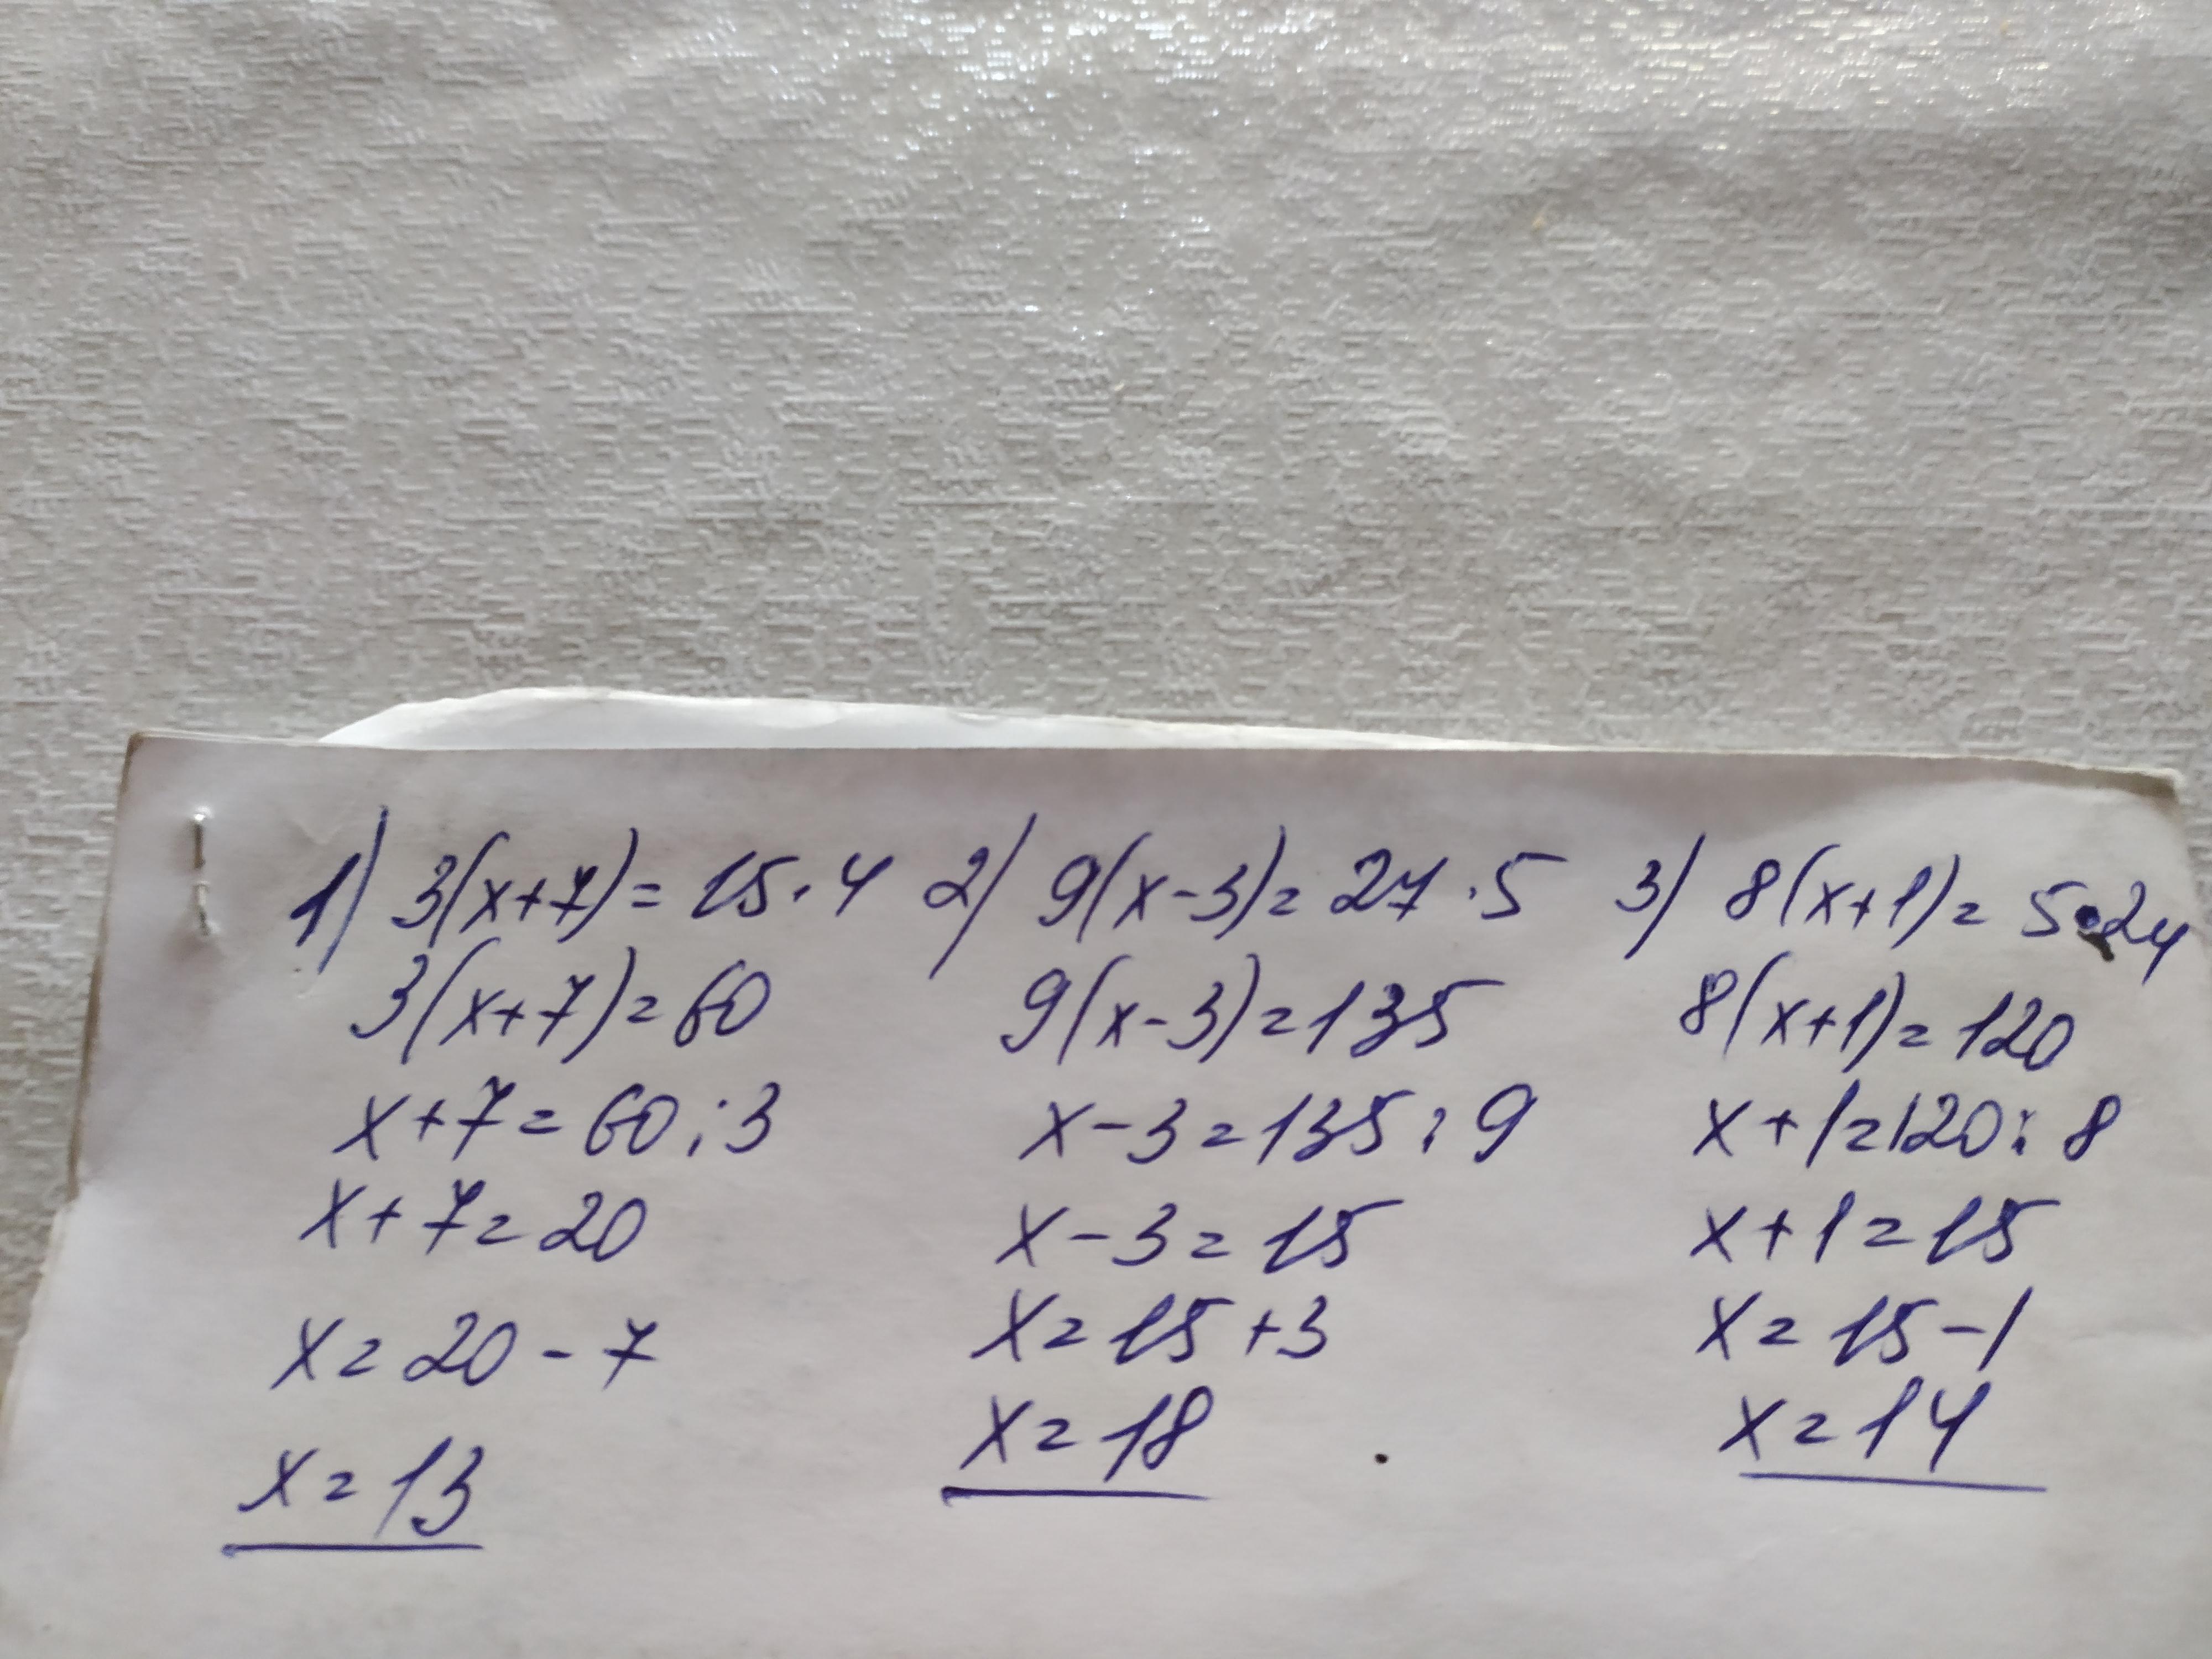 1) 3(x+7)=15·4
3(x+7)=60
x+7=60:3
x+7=20
x=20-7
x=13
2) 9(x-3)=27·5
9(x-3)=135
x-3=135:9
x-3=15
x=15+3
x=18
3) 8(x+1)=5·24
8(x+1)=120
x+1=120:8
x+1=15
x=15-1
x=14